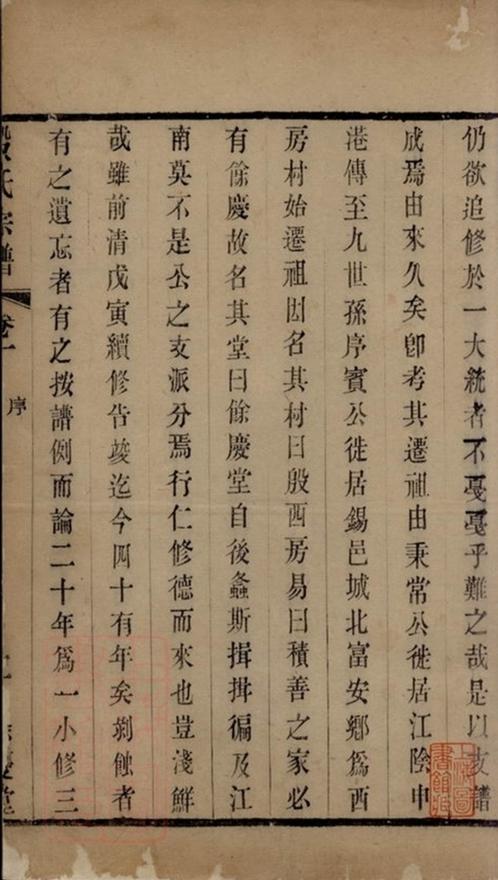 仍欲追修於一大統者不戞戞乎難之哉是以支譜
成焉由來久矣卽考其遷祖由秉常公徙居江陰申
港傳至九世孫序賓公徙居錫邑城北富安鄉爲西
房村始遷祖因名其村曰殷西房易曰積善之家必
有餘慶故名其堂曰餘慶堂自後螽斯揖揖徧及江
南莫不是公之支派分焉行仁修德而來也豈淺鮮
哉雖前清戊寅續修告竣迄今四十有年矣剝蝕者
有之遺忘者有之按譜例而論二十年爲一小修三
殷氏宗譜
卷一
序
上海圖書館藏